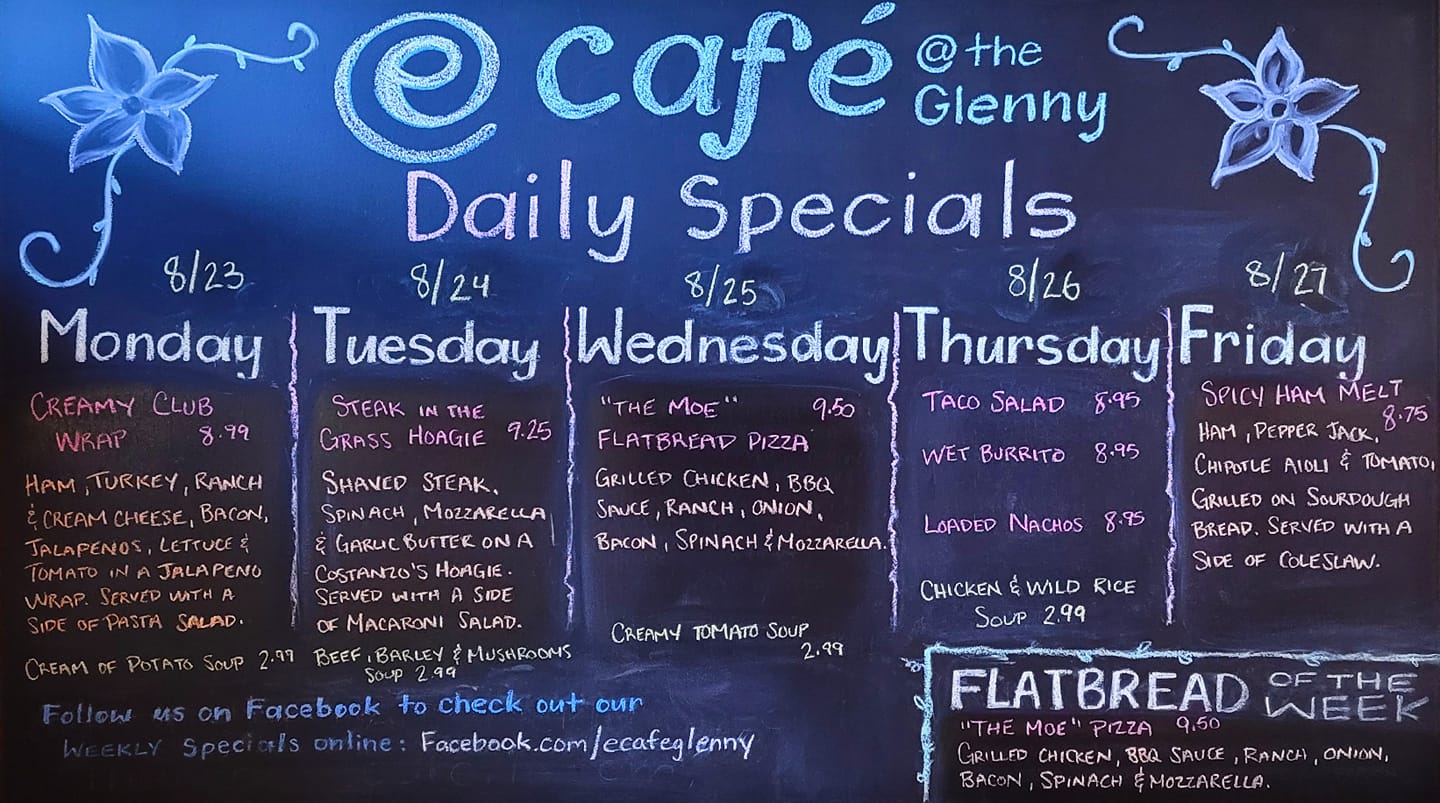 e café @ the
Glenny
Daily Specials
8/23
Monday
CREAMY CLUB
WRAP 8.99
HAM, TURKEY, RANCH
& CREAM CHEESE, BACON,
JALAPENOS, LETTUCE &
TOMATO IN A JALAPENO
WRAP. SERVED WITH A
SIDE OF PASTA SALAD.
CREAM OF POTATO SOUP 2.99
8/24
Tuesday
STEAK IN THE
GRASS HOAGIE 9.25
SHAVED STEAK,
SPINACH, MOZZARELLA
& GARLIC BUTTER ON A
COSTANZO'S HOAGIE.
SERVED WITH A SIDE
OF MACARONI SALAD.
BEEF, BARLEY & MUSHROOMS
SOUP 2.99
8/25
Wednesday
"THE MOE" 9.50
FLATBREAD PIZZA
GRILLED CHICKEN, BBQ
SAUCE, RANCH, ONION,
BACON, SPINACH & MOZZARELLA.
CREAMY TOMATO SOUP
2.99
8/26
Thursday
TACO SALAD 8.95
WET BURRITO 8.95
LOADED NACHOS 8.95
CHICKEN & WILD RICE
SOUP 2.99
8/27
Friday
SPICY HAM MELT
8.75
HAM, PEPPER JACK,
CHIPOTLE AIOLI & TOMATO,
GRILLED ON SOURDOUGH
BREAD. SERVED WITH A
SIDE OF COLESLAW.
Follow us on Facebook to check out our
WEEKLY Specials online: Facebook.com/ecafeglenny
FLATBREAD OF THE
WEEK
"THE MOE" PIZZA 9.50
GRILLED CHICKEN, BBQ SAUCE, RANCH, ONION,
BACON, SPINACH & MOZZARELLA.